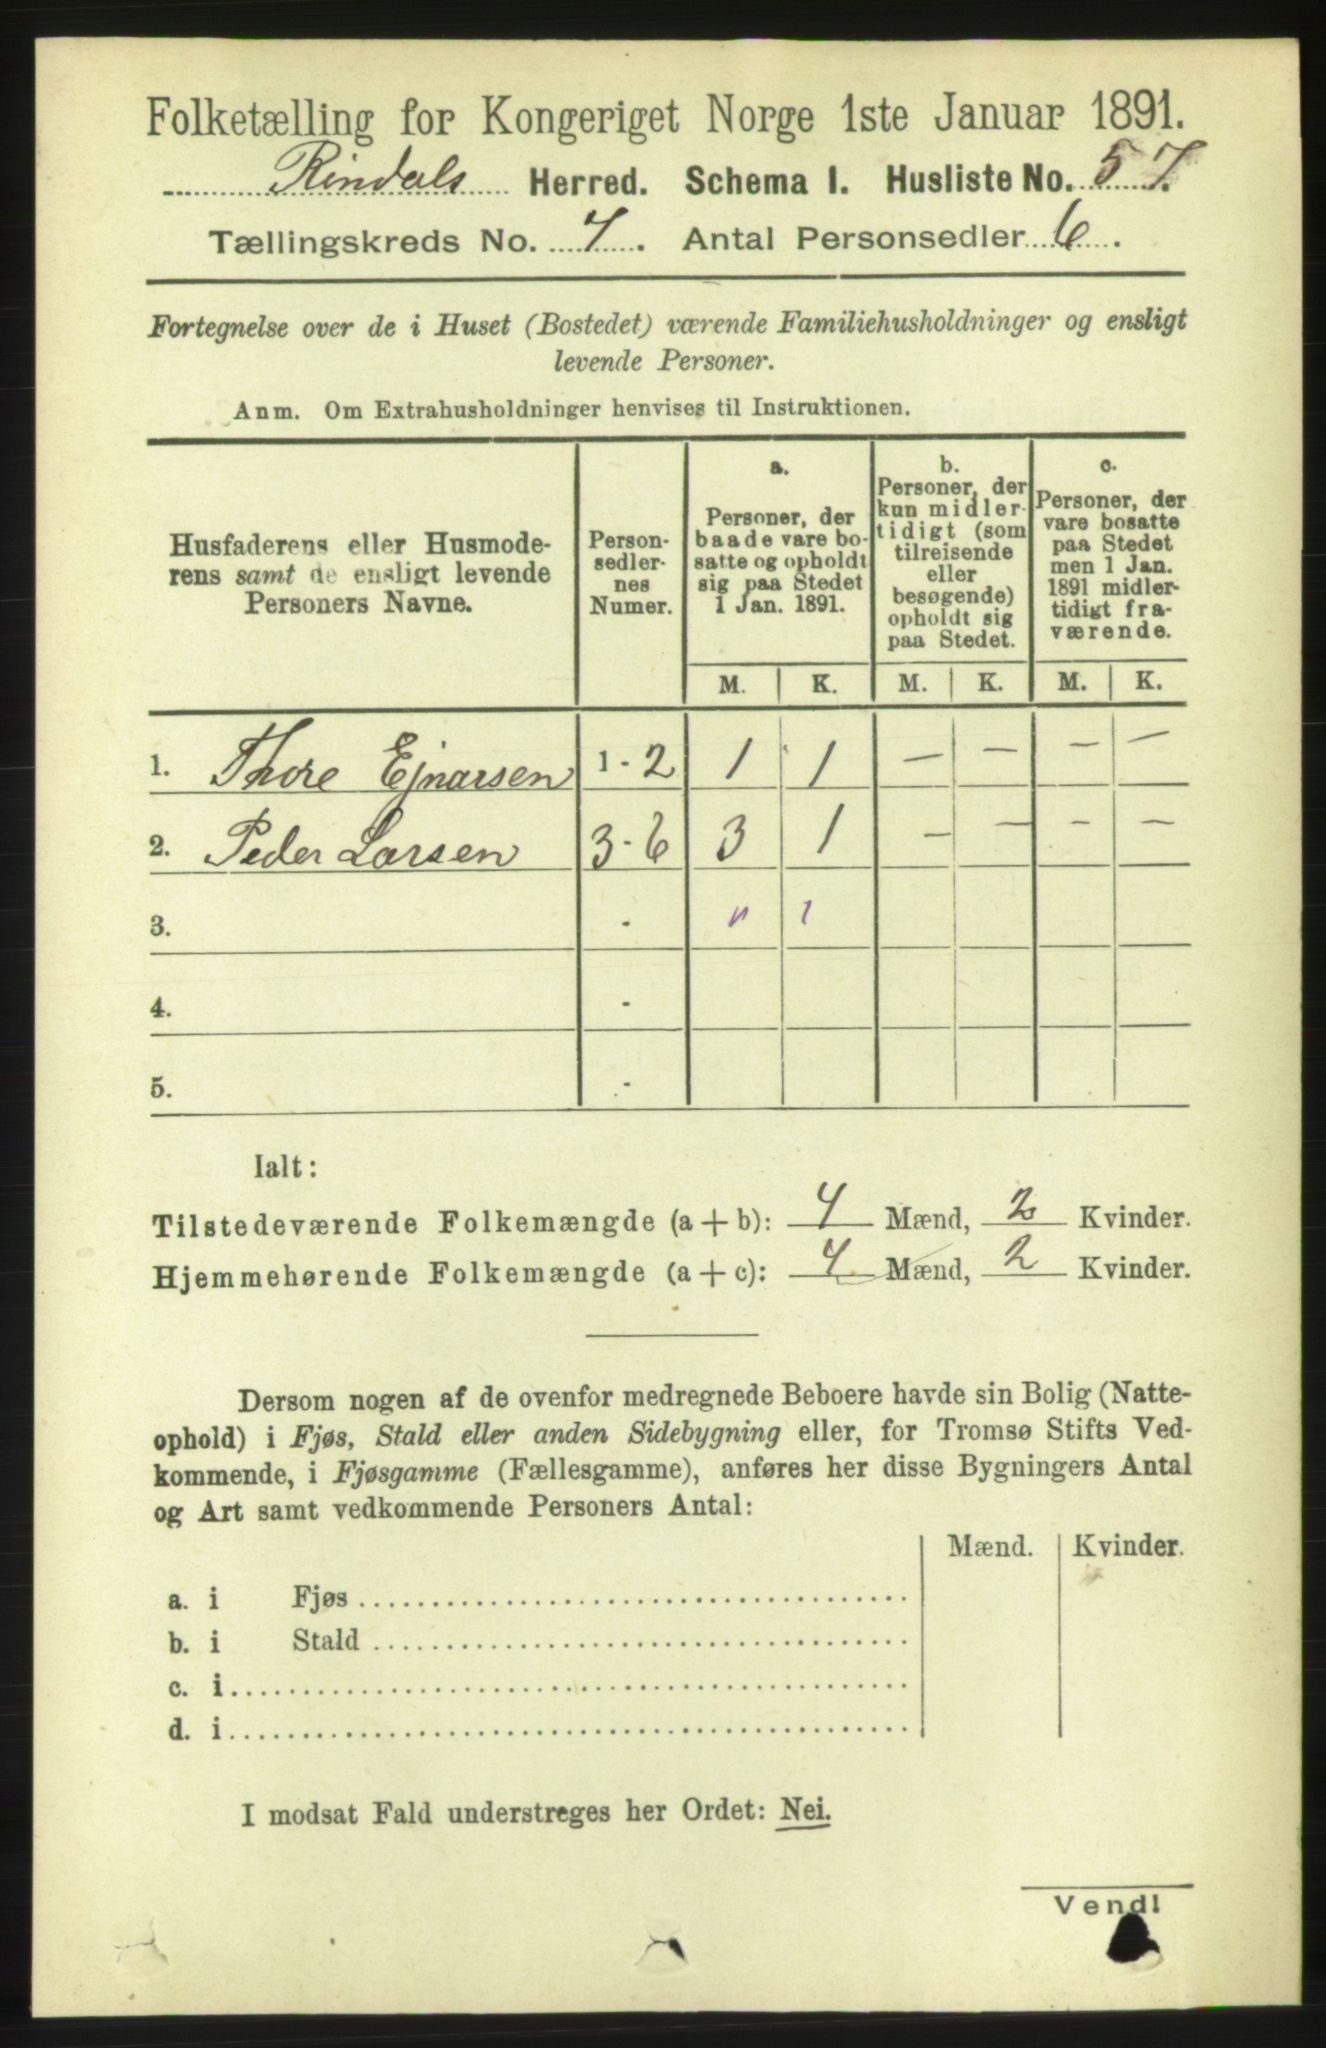 Folketælling for Kongeriget Norge 1ste Januar 1891.
Rindals Herred. Schema I. Husliste No. 57.
Tællingskreds No. 7. Antal Personsedler 6.
Fortegnelse over de i Huset (Bostedet) værende Familiehusholdninger og ensligt
levende Personer.
Anm. Om Extrahusholdninger henvises til Instruktionen.
Husfaderens eller Husmode-
rens samt de ensligt levende
Personers Navne.
Person-
sedler-
nes
Numer.
a.
Personer, der
baade vare bo-
satte og opholdt
sig paa Stedet
1 Jan. 1891.
b.
Personer, der
kun midler-
tidigt (som
tilreisende
eller
besøgende)
opholdt sig
paa Stedet.
c.
Personer, der
vare bosatte
paa Stedet
men 1 Jan.
1891 midler-
tidigt fra-
værende.
M. K. M. K. M. K.
1. Thore Ejnarsen 1-2 1 1 — — — —
2. Peder Larsen 3-6 3 1 — — — —
3. - 1
4. -
5. -
Ialt:
Tilstedeværende Folkemængde (a+b): 4 Mænd, 2 Kvinder.
Hjemmehørende Folkemængde (a+c): 4 Mænd, 2 Kvinder.
Dersom nogen af de ovenfor medregnede Beboere havde sin Bolig (Natte-
ophold) i Fjøs, Stald eller anden Sidebygning eller, for Tromsø Stifts Ved-
kommende, i Fjøsgamme (Fællesgamme), anføres her disse Bygningers Antal
og Art samt vedkommende Personers Antal:
Mænd. Kvinder.
a. i Fjøs
b. i Stald
c. i
d. i
I modsat Fald understreges her Ordet: Nei.
Vend!